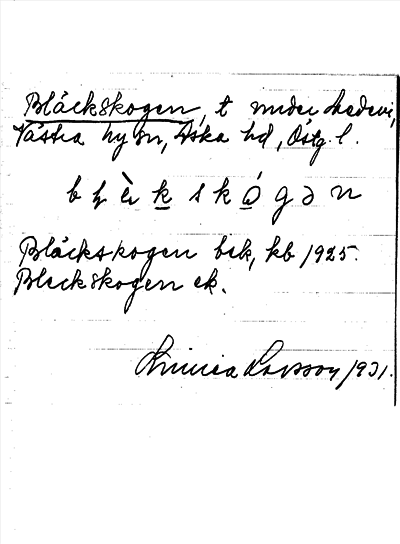 Bläckskogen, t under Medevi,
Västra Ny sn, Aska hd, Östg. l.
b ɫ ɛ̀ k s k ó g ə n
Bläckskogen bek, kb 1925.
Bleckskogen ek.
Linnea Larsson 1931.